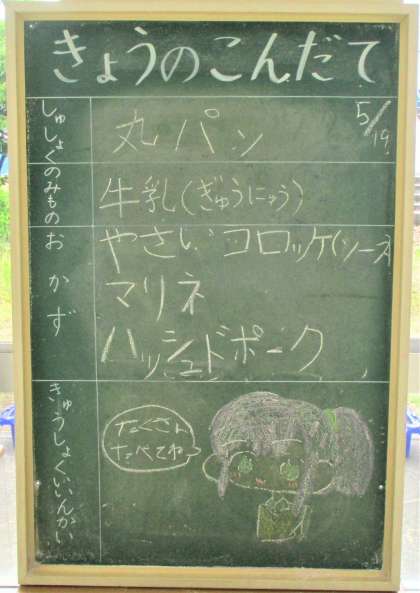 きょうのこんだて
5/19
しゅしょく
丸パン
のみもの
牛乳(ぎゅうにゅう)
おかず
やさいコロッケ(ソース)
マリネ
ハッシュドポーク
きゅうしょくいいんかい
たくさん
たべてね